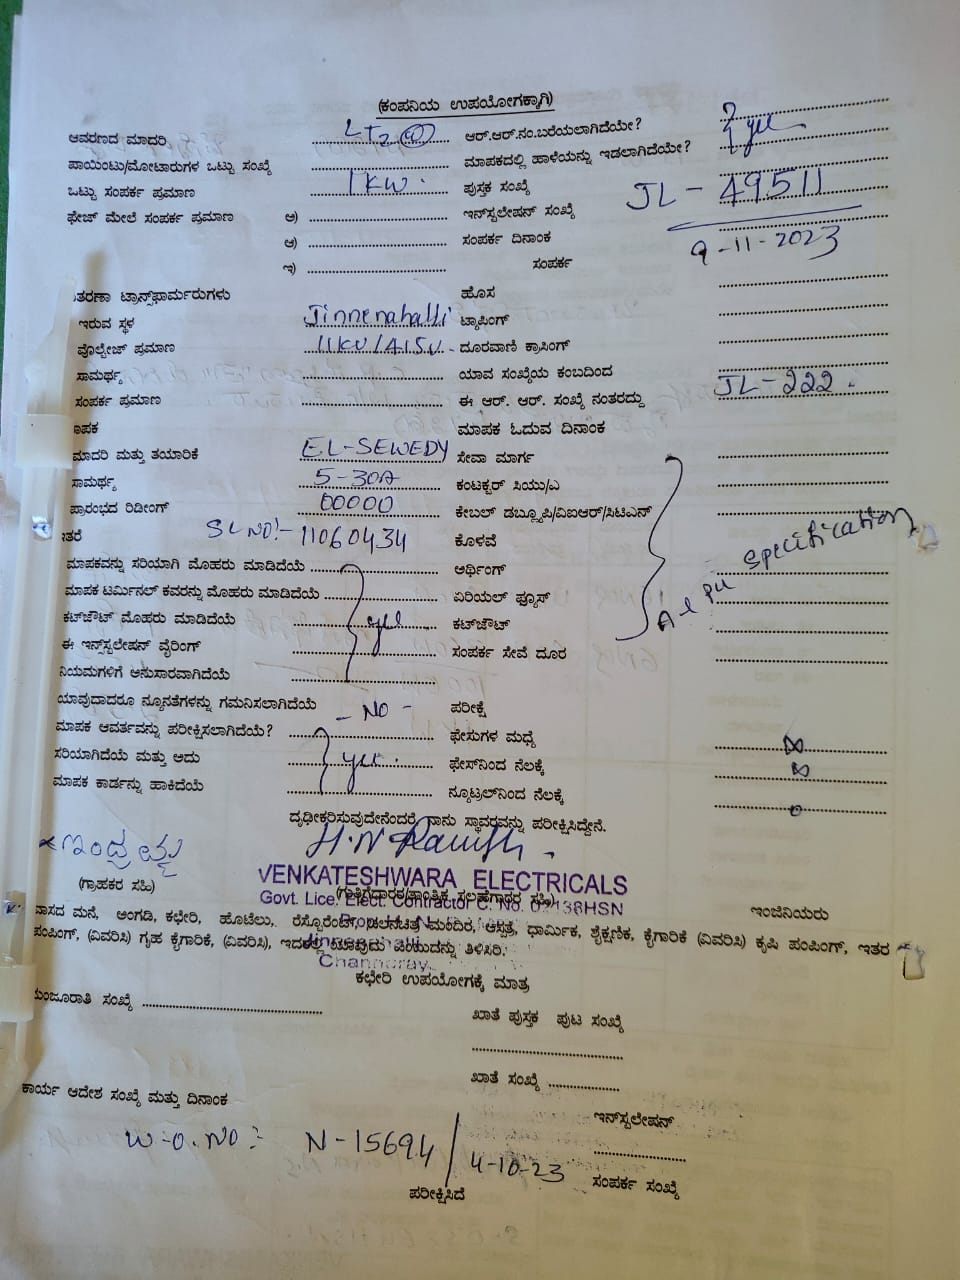 (ಕಂಪನಿಯ ಉಪಯೋಗಕ್ಕಾಗಿ)
ಆವರಣದ ಮಾದರಿ LT2 ಆರ್.ಆರ್.ನಂ.ಬರೆಯಲಾಗಿದೆಯೇ?
ಪಾಯಿಂಟು/ಮೋಟಾರುಗಳ ಒಟ್ಟು ಸಂಖ್ಯೆ ಮಾಪಕದಲ್ಲಿ ಹಾಳೆಯನ್ನು ಇಡಲಾಗಿದೆಯೇ? yes
ಒಟ್ಟು ಸಂಪರ್ಕ ಪ್ರಮಾಣ 1 KW. ಪುಸ್ತಕ ಸಂಖ್ಯೆ
ಫೇಜ್ ಮೇಲೆ ಸಂಪರ್ಕ ಪ್ರಮಾಣ ಅ) ಇನ್‌ಸ್ಟಲೇಷನ್ ಸಂಖ್ಯೆ JL - 49511
ಆ) ಸಂಪರ್ಕ ದಿನಾಂಕ 9-11-2023
ಇ) ಸಂಪರ್ಕ
ತರಣಾ ಟ್ರಾನ್ಸ್‌ಫಾರ್ಮರುಗಳು ಹೊಸ
ಇರುವ ಸ್ಥಳ Jinnenahalli ಟ್ಯಾಪಿಂಗ್
ವೊಲ್ಟೇಜ್ ಪ್ರಮಾಣ 11KV/415V. ದೂರವಾಣಿ ಕ್ರಾಸಿಂಗ್
ಸಾಮರ್ಥ್ಯ ಯಾವ ಸಂಖ್ಯೆಯ ಕಂಬದಿಂದ
ಸಂಪರ್ಕ ಪ್ರಮಾಣ ಈ ಆರ್. ಆರ್. ಸಂಖ್ಯೆ ನಂತರದ್ದು JL-222.
ಾಪಕ ಮಾಪಕ ಓದುವ ದಿನಾಂಕ
ಮಾದರಿ ಮತ್ತು ತಯಾರಿಕೆ EL-SEWEDY ಸೇವಾ ಮಾರ್ಗ
ಸಾಮರ್ಥ್ಯ 5-30A ಕಂಟಕ್ಟರ್ ಸಿಯು/ಎ
ಪ್ರಾರಂಭದ ರಿಡೀಂಗ್ 00000 ಕೇಬಲ್ ಡಬ್ಲ್ಯೂಪಿ/ವಿಐಆರ್/ಸಿಟಿಎನ್
ತರೆ SL NO:- 11060434 ಕೊಳವೆ
ಮಾಪಕವನ್ನು ಸರಿಯಾಗಿ ಮೊಹರು ಮಾಡಿದೆಯೆ ಅರ್ಥಿಂಗ್
ಮಾಪಕ ಟರ್ಮಿನಲ್ ಕವರನ್ನು ಮೊಹರು ಮಾಡಿದೆಯೆ ಏರಿಯಲ್ ಫ್ಯೂಸ್ specification
ಕಟ್‌ಜೌಟ್ ಮೊಹರು ಮಾಡಿದೆಯೆ yes ಕಟ್‌ಜೌಟ್
ಈ ಇನ್ಸ್‌ಸ್ಟಲೇಷನ್ ವೈರಿಂಗ್ ಸಂಪರ್ಕ ಸೇವೆ ದೂರ
ನಿಯಮಗಳಿಗೆ ಅನುಸಾರವಾಗಿದೆಯೆ
ಯಾವುದಾದರೂ ನ್ಯೂನತೆಗಳನ್ನು ಗಮನಿಸಲಾಗಿದೆಯೆ - NO - ಪರೀಕ್ಷೆ
ಮಾಪಕ ಆವರ್ತವನ್ನು ಪರೀಕ್ಷಿಸಲಾಗಿದೆಯೆ? ಫೇಸುಗಳ ಮಧ್ಯೆ
ಸರಿಯಾಗಿದೆಯೆ ಮತ್ತು ಅದು yes. ಫೇಸ್‌ನಿಂದ ನೆಲಕ್ಕೆ
ಮಾಪಕ ಕಾರ್ಡನ್ನು ಹಾಕಿದೆಯೆ ನ್ಯೂಟ್ರಲ್‌ನಿಂದ ನೆಲಕ್ಕೆ 0
ದೃಢೀಕರಿಸುವುದೇನೆಂದರೆ ನಾನು ಸ್ಥಾವರವನ್ನು ಪರೀಕ್ಷಿಸಿದ್ದೇನೆ.
(ಗ್ರಾಹಕರ ಸಹಿ) VENKATESHWARA ELECTRICALS
Govt. Lice. Elect. Contractor C. No. 02138HSN
(ಗುತ್ತಿಗೆದಾರತ/ತಾಂತ್ರಿಕ ಸಲಹೆಗಾರರ ಸಹಿ) ಇಂಜಿನಿಯರು
ವಾಸದ ಮನೆ, ಅಂಗಡಿ, ಕಛೇರಿ, ಹೊಟೆಲು, ರೆಸ್ಟೊರೆಂಟ, ಚಲನಚಿತ್ರ ಮಂದಿರ, ಆಸ್ಪತ್ರೆ, ಧಾರ್ಮಿಕ, ಶೈಕ್ಷಣಿಕ, ಕೈಗಾರಿಕೆ (ವಿವರಿಸಿ) ಕೃಷಿ ಪಂಪಿಂಗ್, ಇತರ
ಪಂಪಿಂಗ್, (ವಿವರಿಸಿ) ಗೃಹ ಕೈಗಾರಿಕೆ, (ವಿವರಿಸಿ), ಇದರಲ್ಲಿ ತಿಳಿಸಿರಿ.
ಕಛೇರಿ ಉಪಯೋಗಕ್ಕೆ ಮಾತ್ರ
ಮಂಜೂರಾತಿ ಸಂಖ್ಯೆ ಖಾತೆ ಪುಸ್ತಕ ಪುಟ ಸಂಖ್ಯೆ
ಖಾತೆ ಸಂಖ್ಯೆ
ಕಾರ್ಯ ಆದೇಶ ಸಂಖ್ಯೆ ಮತ್ತು ದಿನಾಂಕ ಇನ್‌ಸ್ಟಲೇಷನ್
W-O. NO:- N-15694/4-10-23 ಸಂಪರ್ಕ ಸಂಖ್ಯೆ
ಪರೀಕ್ಷಿಸಿದೆ